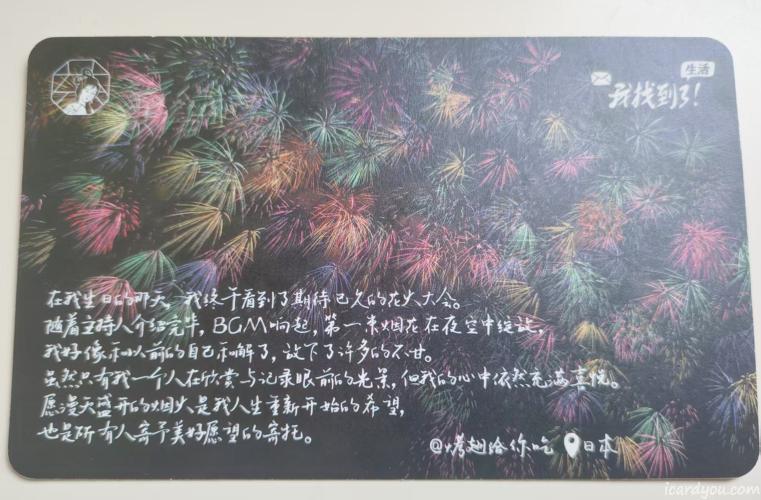 生活
我找到了!
在我生日的那天,我终于看到了期待已久的花火大会。
随着主持人介绍完毕,BGM响起,第一束烟花在夜空中绽放,
我好像和以前的自己和解了,放下了许多的不甘。
虽然只有我一个人在欣赏与记录眼前的光景,但我的心中依然充满喜悦。
愿漫天盛开的烟火是我人生重新开始的希望,
也是所有人寄予美好愿望的寄托。
@烤翅给你吃 日本
icardyou.com